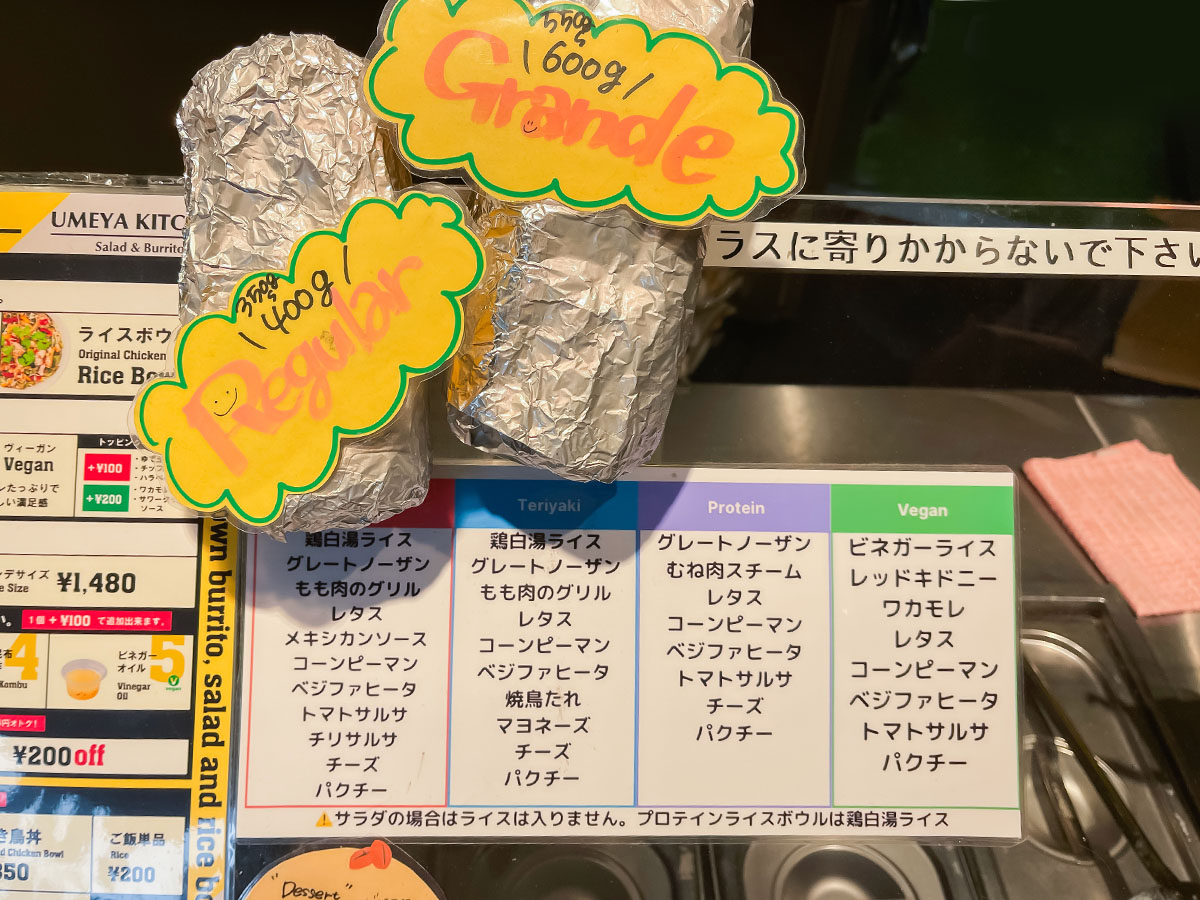 550g
\600g/
Grande
350g
\400g/
Regular
UMEYA KITC
Salad & Burrito
ラスに寄りかからないで下さい
ライスボウ
Original Chicken
Rice Bo
ヴィーガン
Vegan
トッピン
+¥100
+¥200
・ワカモ
・サワー
ソース
たっぷりで
しい満足感
デサイズ
e Size
¥1,480
1個+¥100で追加出来ます。
4
Kombu
ビネガー
オイル
5
Vinegar
Oil
vegan
円オトク!
¥200off
き鳥丼
Chicken Bowl
850
ご飯単品
Rice
¥200
own burrito, salad and rice bo
鶏白湯ライス
グレートノーザン
もも肉のグリル
レタス
メキシカンソース
コーンピーマン
ベジファヒータ
トマトサルサ
チリサルサ
チーズ
パクチー
Teriyaki
鶏白湯ライス
グレートノーザン
もも肉のグリル
レタス
コーンピーマン
ベジファヒータ
焼鳥たれ
マヨネーズ
チーズ
パクチー
Protein
グレートノーザン
むね肉スチーム
レタス
コーンピーマン
ベジファヒータ
トマトサルサ
チーズ
パクチー
Vegan
ビネガーライス
レッドキドニー
ワカモレ
レタス
コーンピーマン
ベジファヒータ
トマトサルサ
パクチー
⚠サラダの場合はライスは入りません。プロテインライスボウルは鶏白湯ライス
"Dessert"